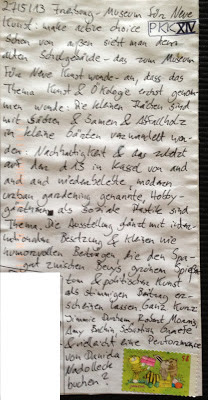 27/5/13 Freiburg - Museum für Neue
Kunst make active choice
PKK XIV
schon von außen sieht man dem
alten Schulgebäude - das zum Museum
für Neue Kunst wurde - an, dass das
Thema Kunst & Ökologie ernst genom-
men wurde: Die kleinen Flächen sind
mit Gärten & Samen & Abfallholz
in kleine Gärten verwandelt wor-
den - Nachhaltigkeit & das zuletzt
auf der d13 in Kassel von und
und und wiederbelebte, modern
urban gardening genannte, Hobby-
gärtnern als soziale Plastik sind
Thema. Die Ausstellung glänzt mit inter-
nationaler Besetzung & kleinen wie
humorvollen Beiträgen die den Spa-
gat zwischen Beuys großem
tum & politischer Kunst
als stimmigen Beitrag er-
scheinen lassen. Ganz kurz:
Jimmie Durham, Robert Morris,
Amy Balkin,
& vielleicht eine Performance
von Daniela
buchen?